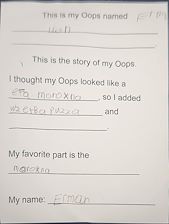 This is my Oops named
This is the story of my Oops.
I thought my Oops looked like a
eta maroxna, so I added
and
My favorite part is the
maroxna
My name: Erman